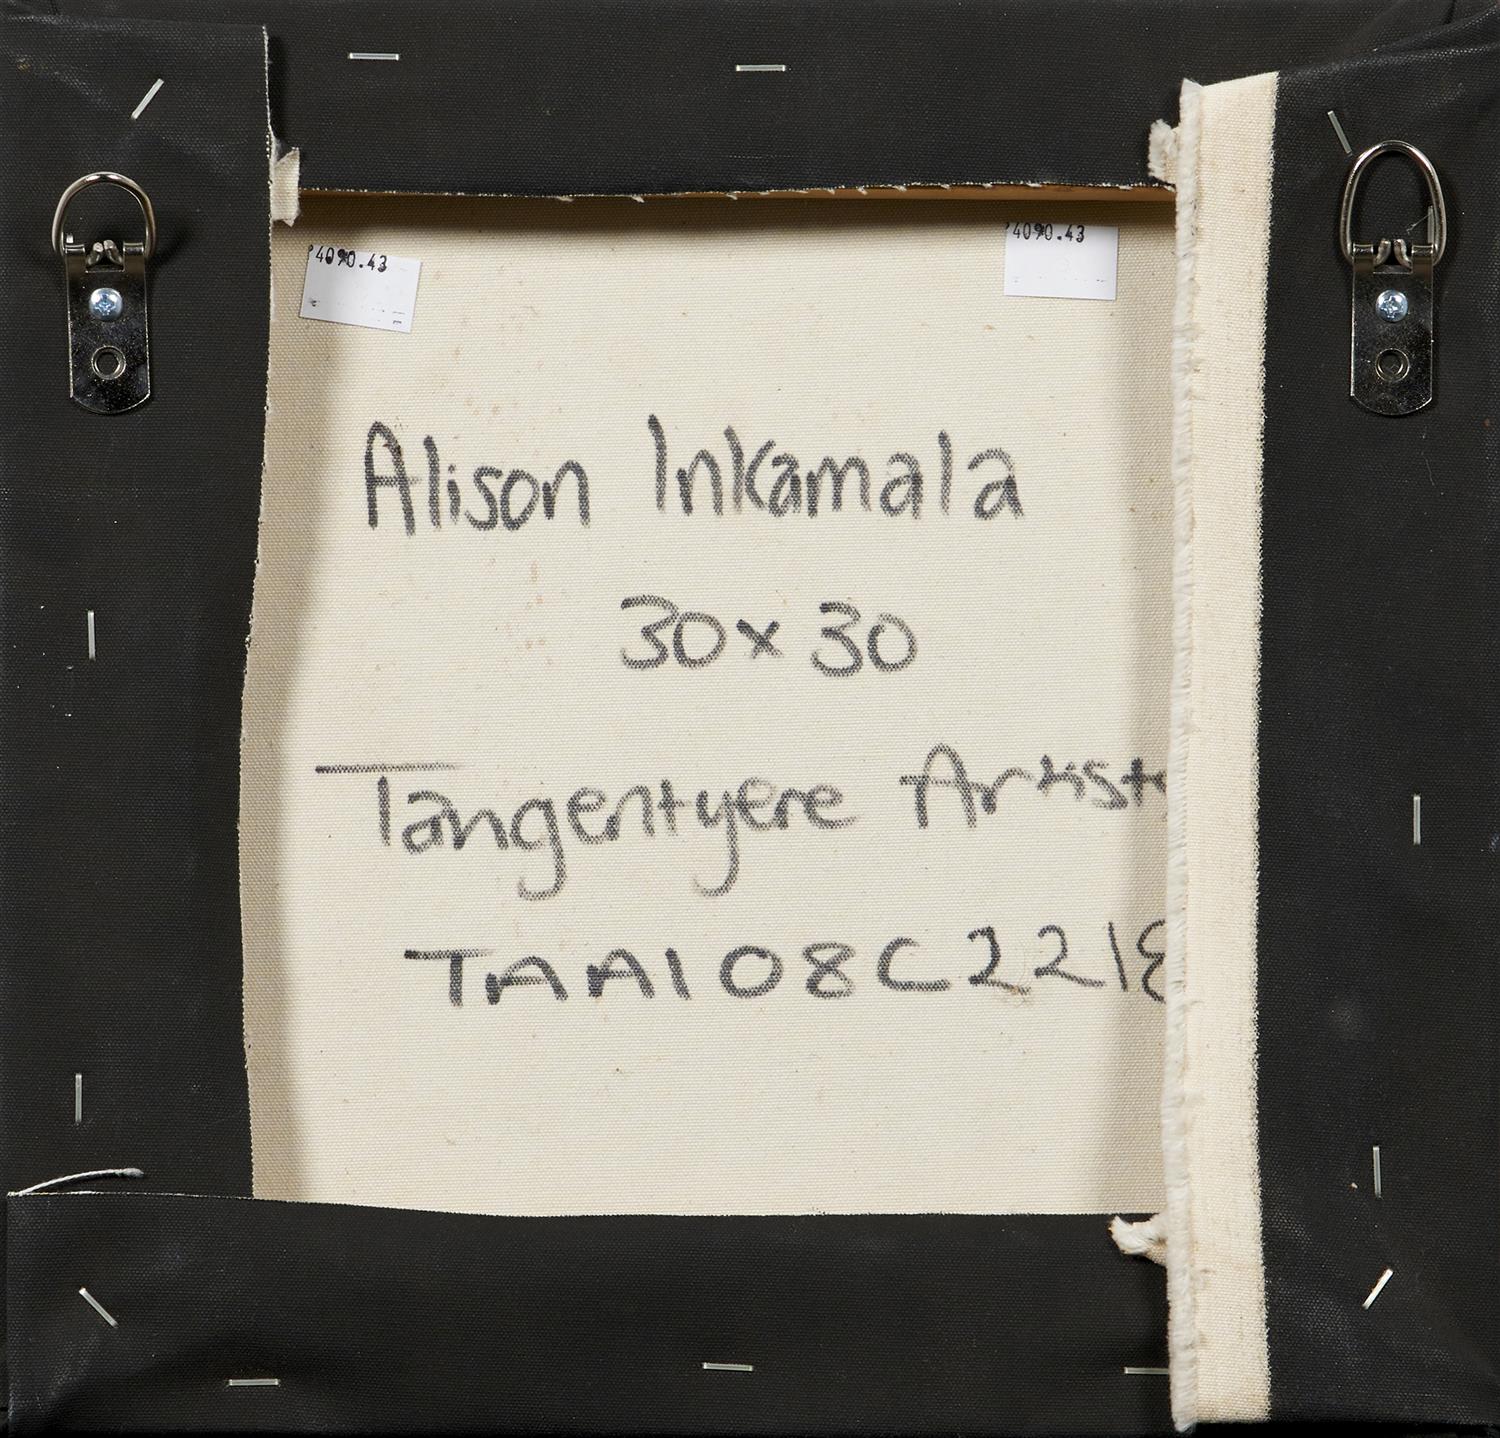 P4090.43
P4090.43
Alison Inkamala
30x30
Tangentyere Artist
TAA108C221